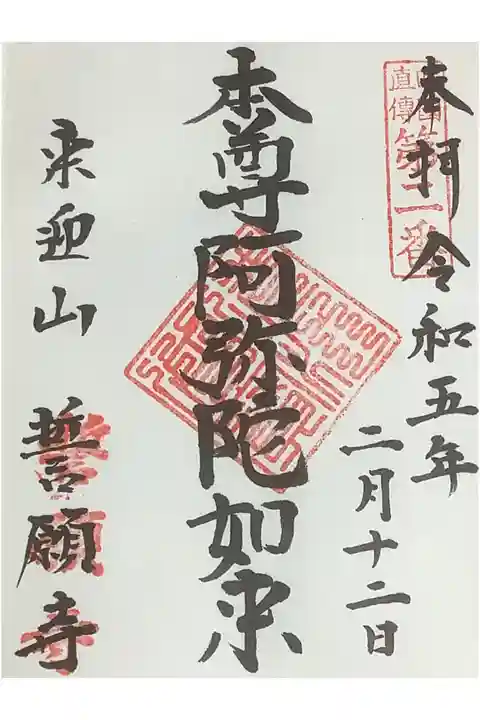 奉拝 令和五年
二月十二日
直傳
第二番
本尊阿弥陀如来
来迎山
誓願寺